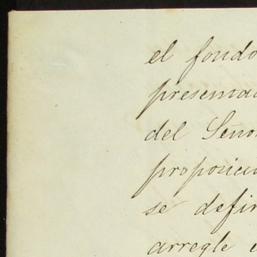 el fondo
presenta
del Seño
proposici
se defin
arregle